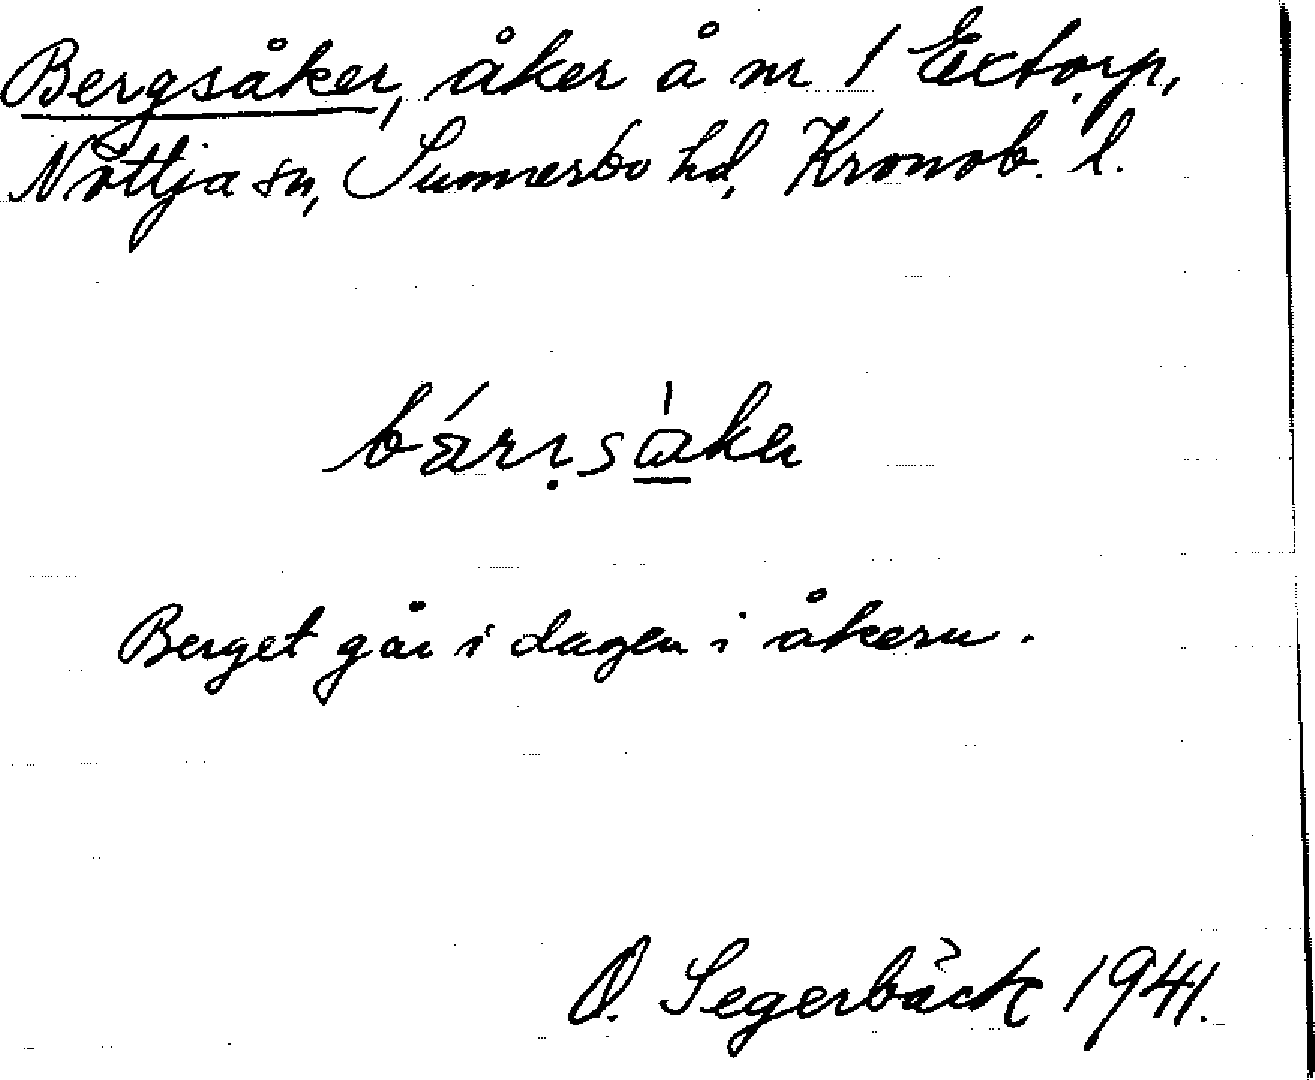 Bergsåker, åker å nr 1 Ectorp,
Nöttja sn, Sunnerbo hd, Kronob. l.
Berget går i dagen i åkern.
O. Segerbäck 1941.